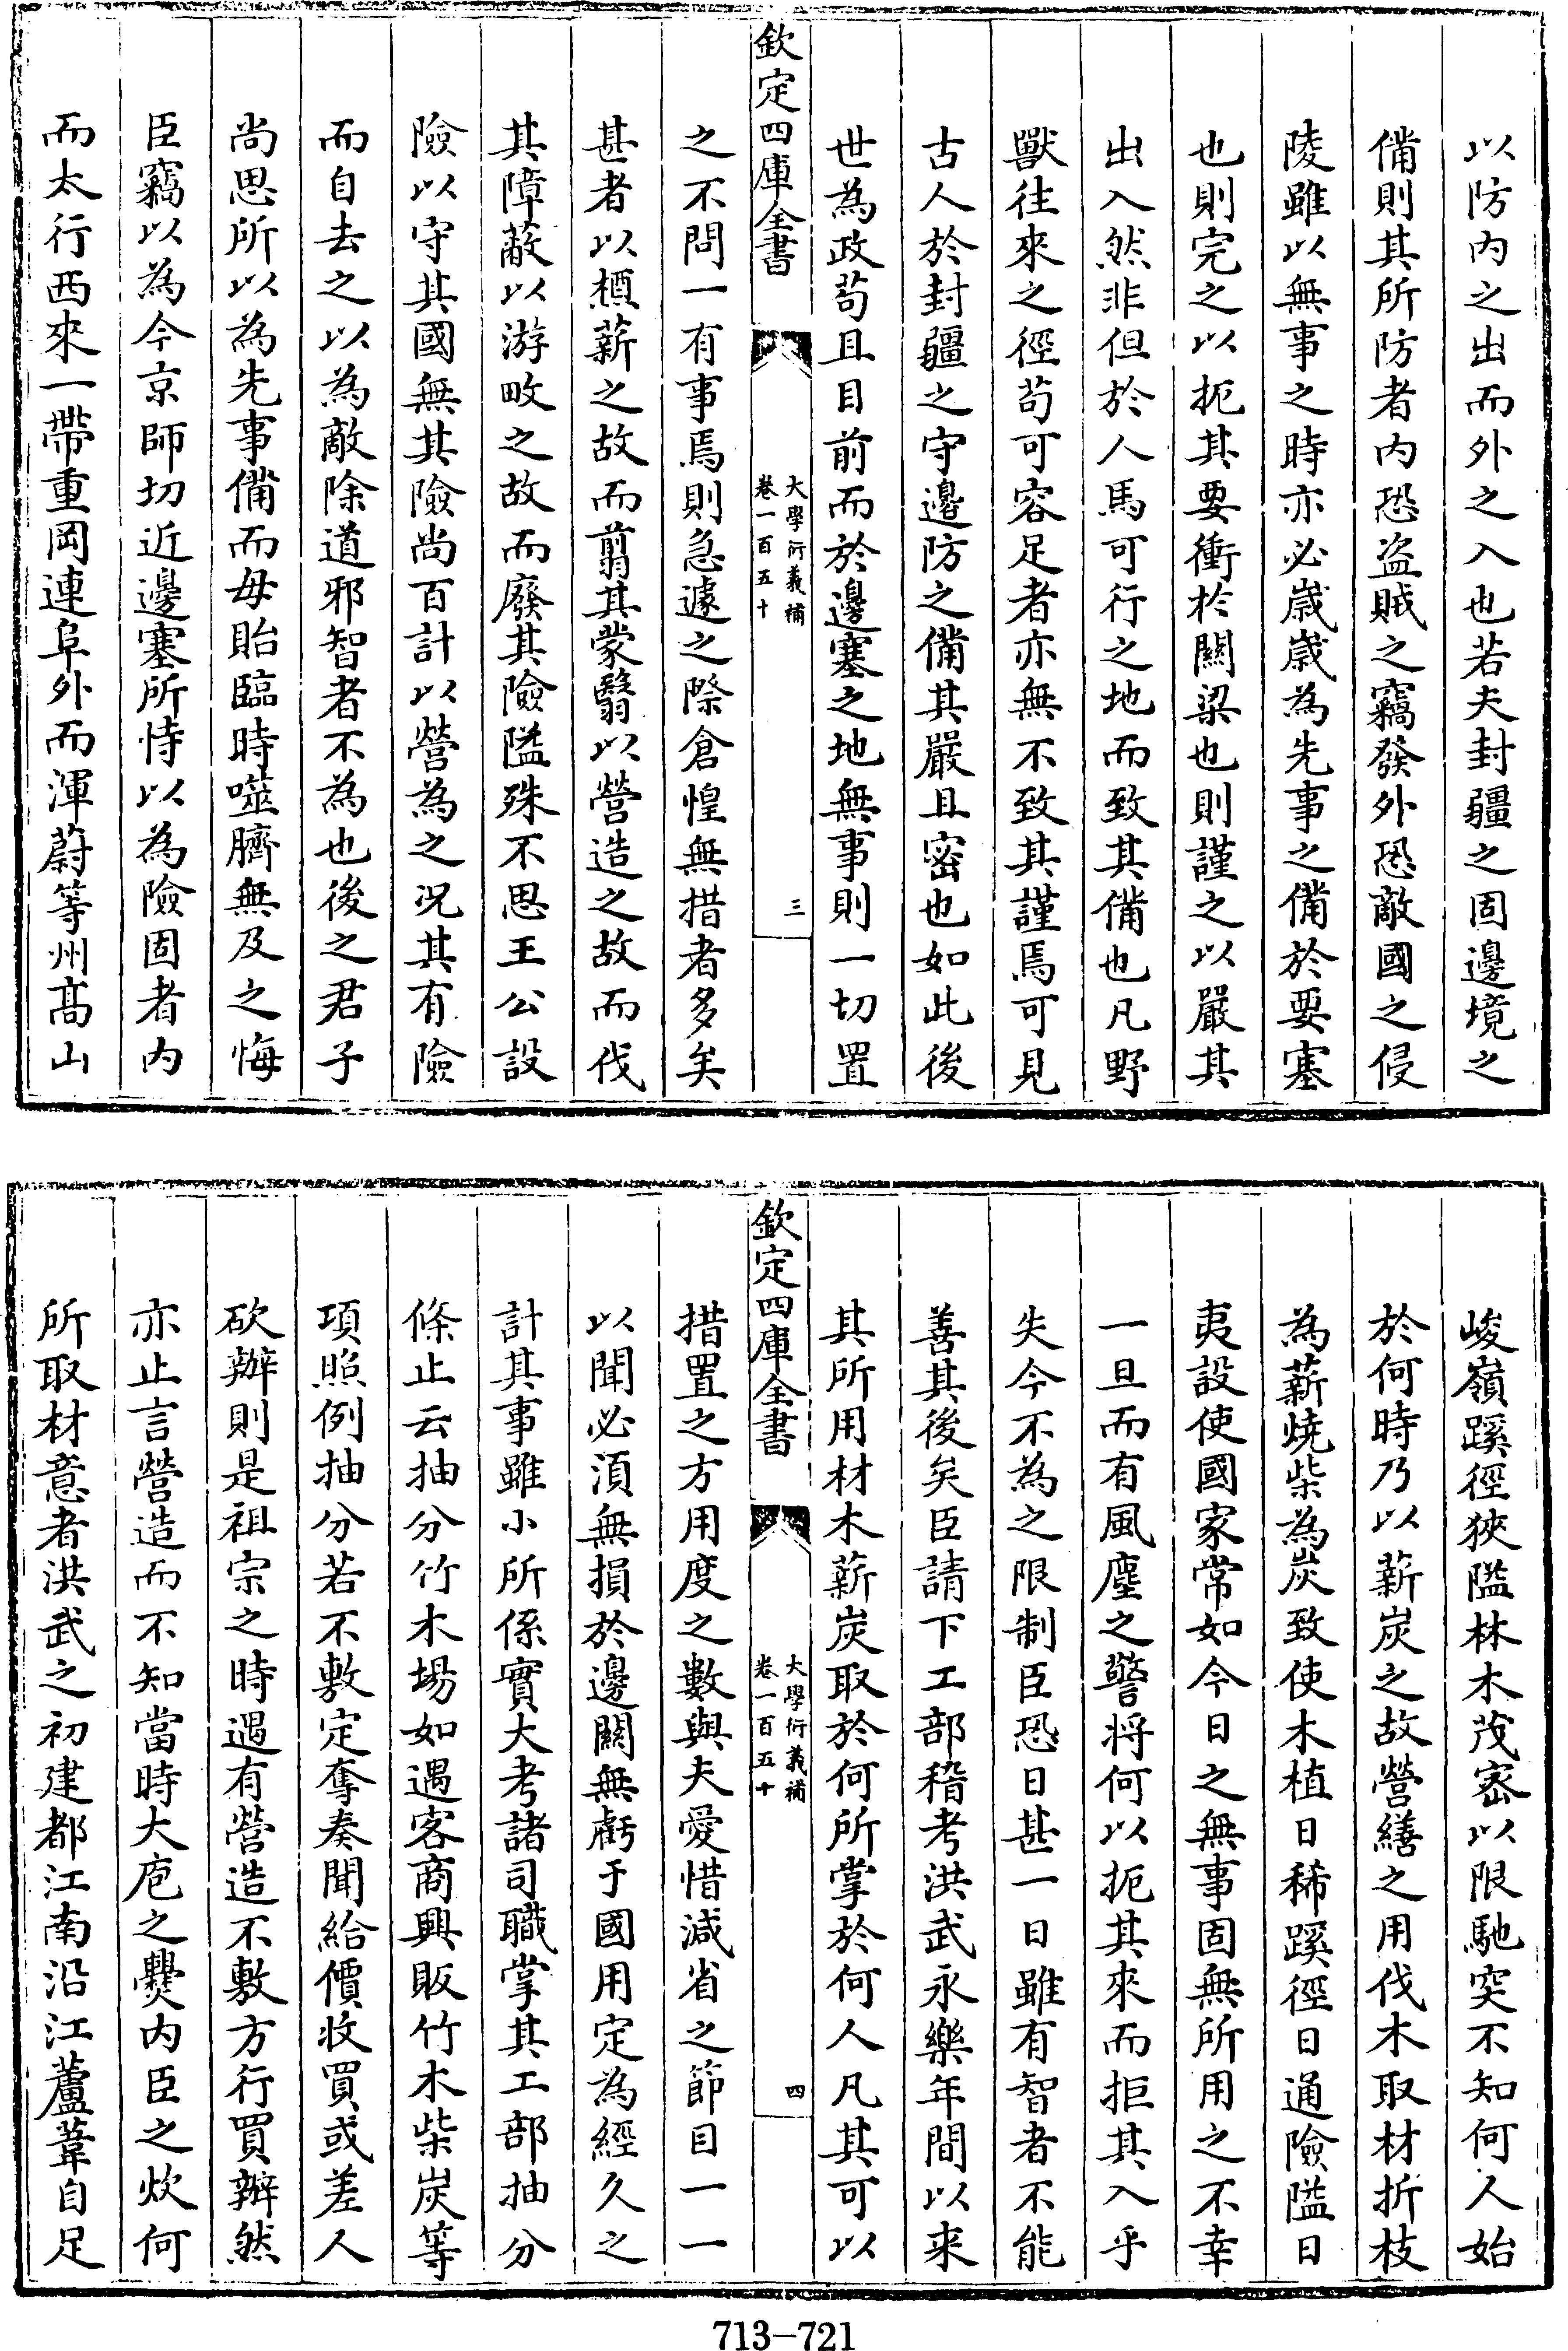 以防内之出而外之入也若夫封疆之固邊境之
備則其所防者内恐盗賊之竊發外恐敵國之侵
陵雖以無事之時亦必歳歳為先事之備於要塞
也則完之以扼其要衝於關梁也則謹之以嚴其
出入然非但於人馬可行之地而致其備也凡野
獸往來之徑茍可容足者亦無不致其謹焉可見
古人於封疆之守邊防之備其嚴且密也如此後
世為政茍且目前而於邊塞之地無事則一切置
欽定四庫全書
大學衍義補
卷一百五十
三
之不問一有事焉則急遽之際倉惶無措者多矣
甚者以槱薪之故而翦其蒙翳以營造之故而伐
其障蔽以游畋之故而廢其險隘殊不思王公設
險以守其國無其險尚百計以營為之况其有險
而自去之以為敵除道邪智者不為也後之君子
尚思所以為先事備而毋貽臨時噬臍無及之悔
臣竊以為今京師切近邊塞所恃以為險固者内
而太行西來一帶重岡連阜外而渾蔚等州髙山
峻嶺蹊徑狹隘林木茂宻以限馳突不知何人始
於何時乃以薪炭之故營繕之用伐木取材折枝
為薪燒柴為炭致使木植日稀蹊徑日通險隘日
夷設使國家常如今日之無事固無所用之不幸
一旦而有風塵之警将何以扼其來而拒其入乎
失今不為之限制臣恐日甚一日雖有智者不能
善其後矣臣請下工部稽考洪武永樂年間以来
其所用材木薪炭取於何所掌於何人凡其可以
欽定四庫全書
大學衍義補
卷一百五十
四
措置之方用度之數與夫愛惜減省之節目一一
以聞必湏無損於邊關無虧于國用定為經久之
計其事雖小所係實大考諸司職掌其工部抽分
條止云抽分竹木塲如遇客商興販竹木柴炭等
項照例抽分若不敷定奪奏聞給價收買或差人
砍辦則是祖宗之時遇有營造不敷方行買辦然
亦止言營造而不知當時大庖之㸑内臣之炊何
所取材意者洪武之初建都江南沿江蘆葦自足
713-721